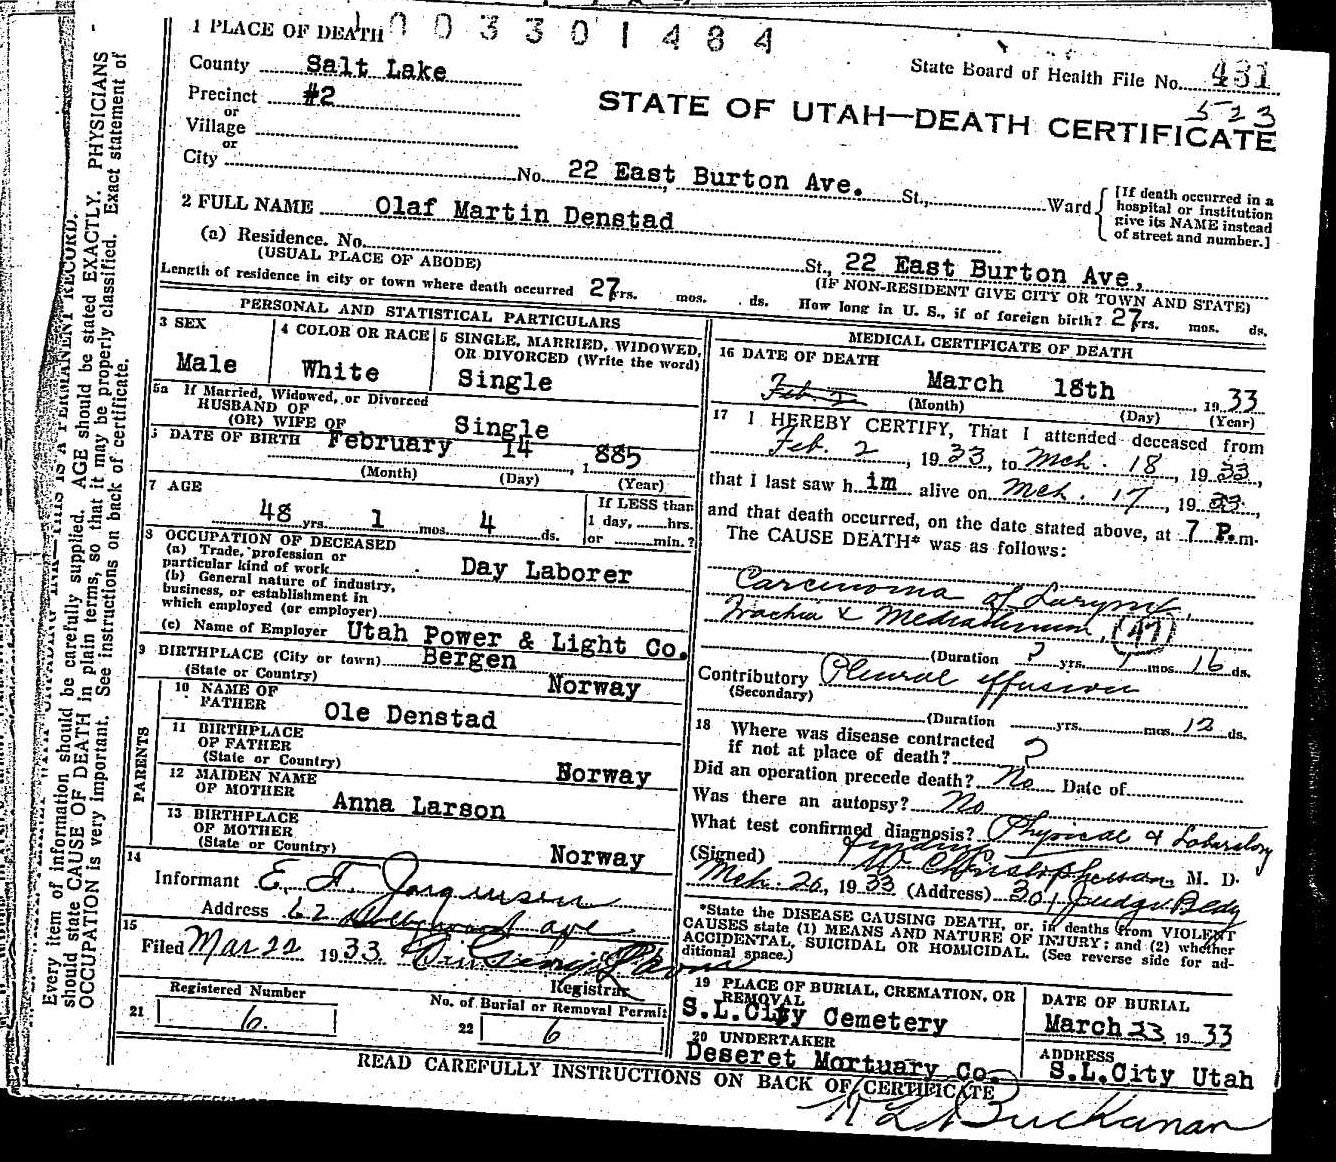 1 PLACE OF DEATH 1 0 0 3 3 0 1 4 8 4
County Salt Lake
State Board of Health File No. 431
Precinct #2
523
or
Village
STATE OF UTAH—DEATH CERTIFICATE
or
City
No. 22 East Burton Ave. St., Ward
[If death occurred in a hospital or institution give its NAME instead of street and number.]
2 FULL NAME Olaf Martin Denstad
(a) Residence. No. St., 22 East Burton Ave,
(USUAL PLACE OF ABODE)
(IF NON-RESIDENT GIVE CITY OR TOWN AND STATE)
Length of residence in city or town where death occurred 27 yrs. mos. ds. How long in U. S., if of foreign birth? 27 yrs. mos. ds.
PERSONAL AND STATISTICAL PARTICULARS
3 SEX
Male
4 COLOR OR RACE
White
5 SINGLE, MARRIED, WIDOWED, OR DIVORCED (Write the word)
Single
5a If Married, Widowed, or Divorced
HUSBAND OF
(OR) WIFE OF Single
DATE OF BIRTH February 14, 1885
(Month) (Day) (Year)
7 AGE
48 yrs. 1 mos. 4 ds.
If LESS than
1 day, hrs.
or min.?
8 OCCUPATION OF DECEASED
(a) Trade, profession or
particular kind of work Day Laborer
(b) General nature of industry,
business, or establishment in
which employed (or employer)
(c) Name of Employer Utah Power & Light Co.
9 BIRTHPLACE (City or town) Bergen
(State or Country) Norway
PARENTS
10 NAME OF
FATHER Ole Denstad
11 BIRTHPLACE
OF FATHER
(State or Country) Norway
12 MAIDEN NAME
OF MOTHER Anna Larson
13 BIRTHPLACE
OF MOTHER
(State or Country) Norway
14
Informant E. F. Jorgensen
Address 62 Hollywood ave
15
Filed Mar 22 1933
Registrar
21 Registered Number
6.
22 No. of Burial or Removal Permit
6
MEDICAL CERTIFICATE OF DEATH
16 DATE OF DEATH
Feb 2 March 18th, 1933
(Month) (Day) (Year)
17 I HEREBY CERTIFY, That I attended deceased from
Feb. 2, 1933, to Mch. 18, 1933,
that I last saw h im alive on Mch. 17, 1933,
and that death occurred, on the date stated above, at 7 P.m.
The CAUSE DEATH* was as follows:
Carcinoma of Larynx,
Trachia & Mediastinum, (47)
(Duration ? yrs. 1 mos. 16 ds.
Contributory Pleural effusion
(Secondary)
(Duration yrs. mos. 12 ds.
18 Where was disease contracted
if not at place of death? ?
Did an operation precede death? No Date of
Was there an autopsy? No
What test confirmed diagnosis? Physical & Laboratory
findings
(Signed) W. Christopherson M. D.
Mch. 20, 1933 (Address) 301 Judge Bldg
*State the DISEASE CAUSING DEATH, or, in deaths from VIOLENT
CAUSES state (1) MEANS AND NATURE OF INJURY; and (2) whether
ACCIDENTAL, SUICIDAL OR HOMICIDAL. (See reverse side for ad-
ditional space.)
19 PLACE OF BURIAL, CREMATION, OR
REMOVAL
S.L.City Cemetery
DATE OF BURIAL
March 23 1933
20 UNDERTAKER
Deseret Mortuary Co.
ADDRESS
S.L.City Utah
READ CAREFULLY INSTRUCTIONS ON BACK OF CERTIFICATE
Buchanan
Every item of information should be carefully supplied. AGE should be stated EXACTLY. PHYSICIANS
should state CAUSE OF DEATH in plain terms, so that it may be properly classified. Exact statement of
OCCUPATION is very important. See instructions on back of certificate.
THIS IS A PERMANENT RECORD.